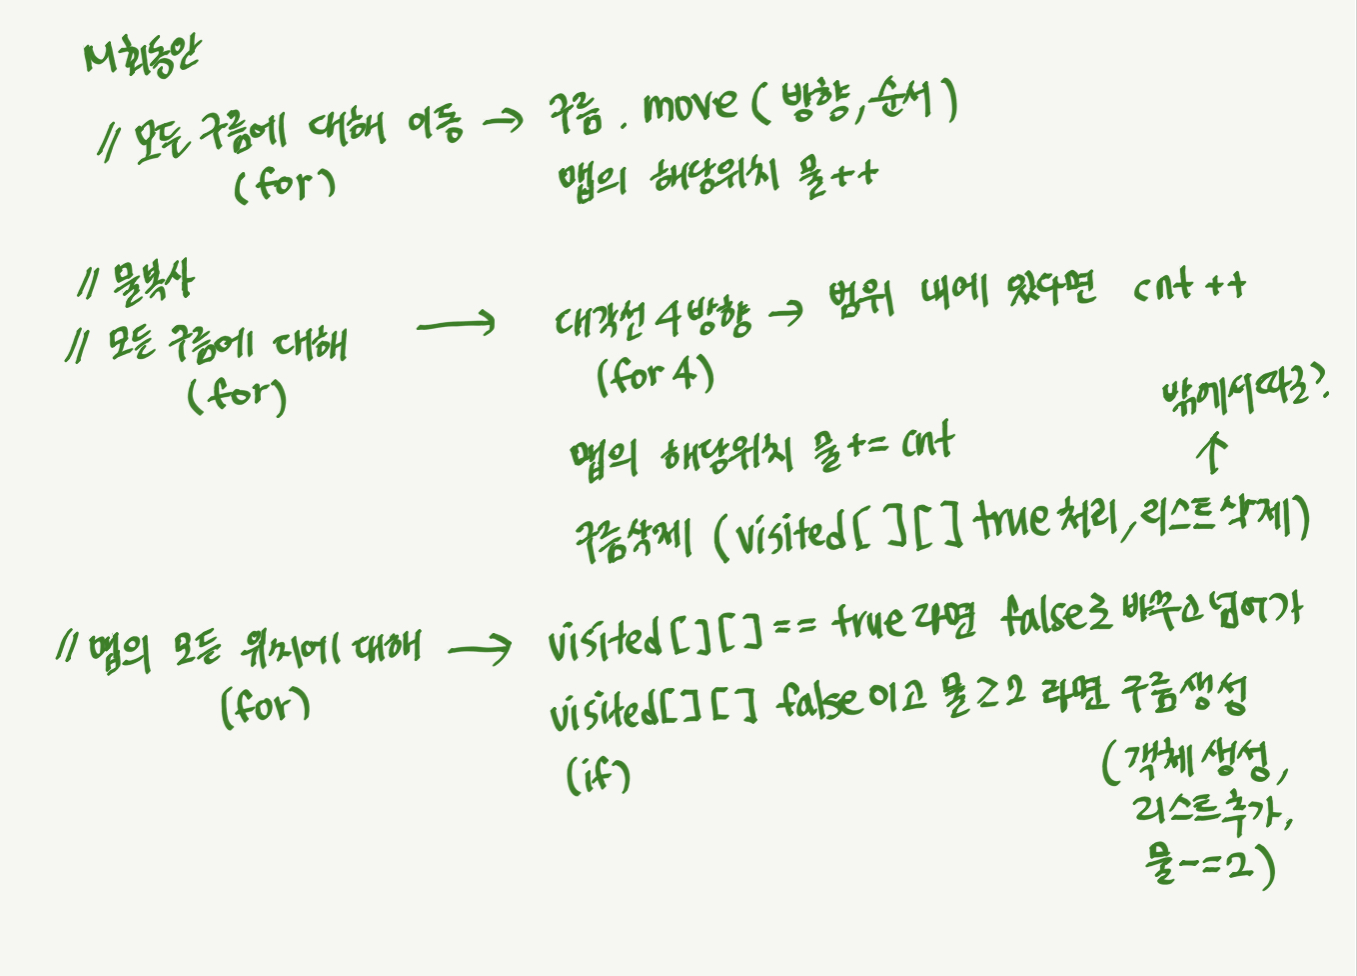 M회동안
// 모든 구름에 대해 이동 → 구름 . move ( 방향, 순서 )
(for)
맵의 해당위치 물++
// 물복사
// 모든 구름에 대해 → 대각선 4방향 → 범위 내에 있다면 cnt ++
(for)
(for 4)
밖에서따로?
↑
맵의 해당위치 물 += cnt
구름삭제 (visited[ ][ ] true 처리, 리스트 삭제)
// 맵의 모든 위치에 대해 → visited[ ][ ] == true 라면 false로 바꾸고 넘어가
(for)
visited[ ][ ] false 이고 물 ≥ 2 라면 구름생성
(if)
( 객체 생성,
리스트추가,
물 -= 2 )